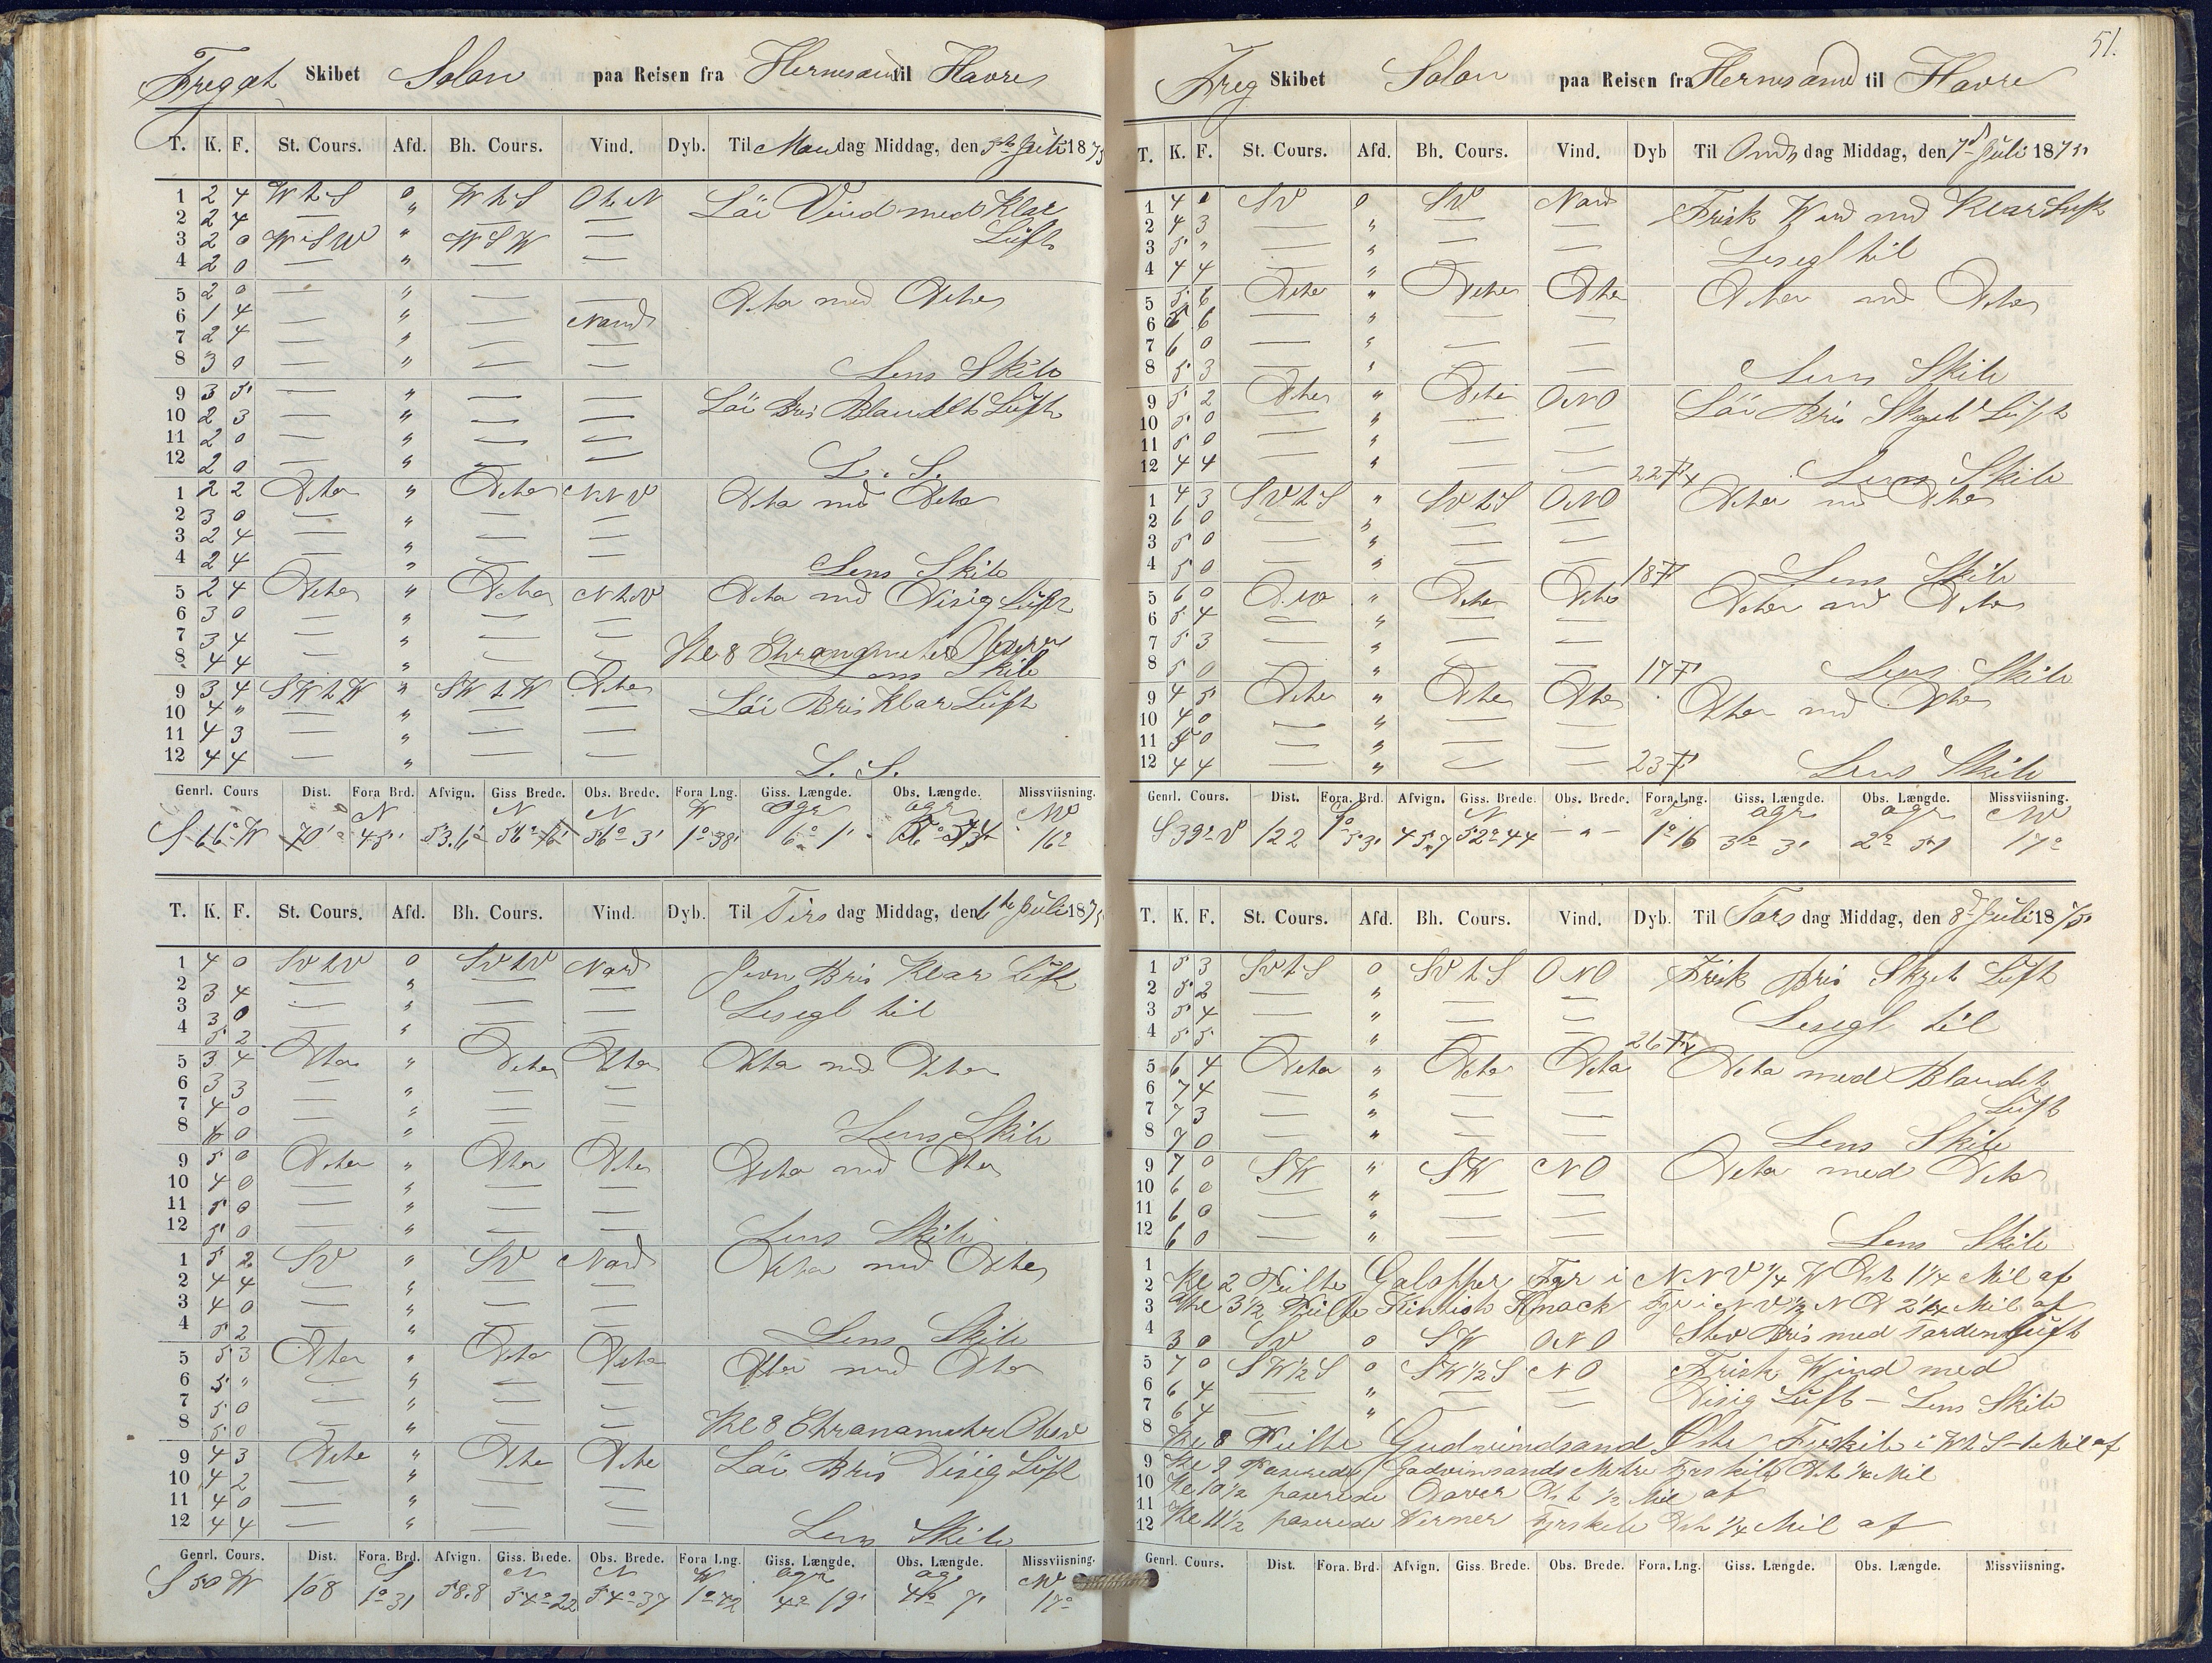 Fregat Skibet Solon paa Reisen fra Hernesand til Havre
T. K. F. St. Cours. Afd. Bh. Cours. Vind. Dyb. Til Mandag Middag, den 5te Juli 1875
1 2 4 W t S 0 W t S O t N Löi Vind med Klar
2 2 4 — " — — Luft
3 2 0 W S W " W S W —
4 2 0 — " — —
5 2 0 — " — — Dito med Dito
6 1 4 — " — Nord
7 2 4 — " — —
8 3 0 — " — — Lens Skib
9 3 5 — " — — Löi Bris Blandet Luft
10 2 3 — " — —
11 2 0 — " — —
12 2 0 — " — — L. S.
1 2 2 Dito " Dito N N V Dito med Dito
2 3 0 — " — —
3 2 4 — " — —
4 2 4 — " — — Lens Skib
5 2 4 Dito " Dito N t V Dito med Disig Luft
6 3 0 — " — —
7 3 4 — " — — Kl 8 Chronometer Observ
8 4 4 — " — — Lens Skib
9 3 4 SW t W " SW t W Dito Löi Bris Klar Luft
10 4 " — " — —
11 4 3 — " — —
12 4 4 — " — — L. S.
Genrl. Cours Dist. Fora Brd. Afvign. Giss Brede. Obs. Brede. Fora Lng. Giss. Længde. Obs. Længde. Missviisning.
N N N W ogr ogr NW
S 66° W 70' 45' 53.6 56° 56° 3' 1° 38' 6° 1' 5° 54 16°
T. K. F. St. Cours. Afd. Bh. Cours. Vind. Dyb. Til Tirsdag Middag, den 6te Juli 1875
1 4 0 SV t V 0 SV t V Nord Jevn Bris Klar Luft
2 3 4 — " — — Lesegl til
3 3 0 — " — —
4 5 2 — " — —
5 3 4 Dito " Dito Dito Dito med Dito
6 3 3 — " — —
7 4 0 — " — —
8 4 0 — " — — Lens Skib
9 5 0 Dito " Dito Dito Dito med Dito
10 4 0 — " — —
11 5 0 — " — —
12 5 0 — " — — Lens Skib
1 5 2 SV " SV Nord Dito med Dito
2 4 4 — " — —
3 4 0 — " — —
4 5 2 — " — — Lens Skib
5 5 3 Dito " Dito Dito Dito med Dito
6 5 " — " — —
7 5 0 — " — —
8 5 0 — " — — Kl 8 Chronometer Observ
9 4 3 Dito " Dito Dito Löi Bris Disig Luft
10 4 2 — " — —
11 4 0 — " — —
12 4 4 — " — — Lens Skib
Genrl. Cours. Dist. Fora. Brd. Afvign. Giss. Brede. Obs. Brede. Fora Lng. Giss. Længde. Obs. Længde. Missviisning.
S N N W ogr ogr NW
S 50 W 108 1° 31 58.8 54° 22 54° 37 1° 42 4° 19' 4° 7' 17°
51.
Freg Skibet Solon paa Reisen fra Hernesand til Havre
T. K. F. St. Cours. Afd. Bh. Cours. Vind. Dyb Til Onsdag Middag, den 7de Juli 1875
1 4 " SV 0 SV Nord Frisk Wind med Klar Luft
2 4 3 — " — —
3 5 " — " — — Lesegl til
4 4 4 — " — —
5 5 6 Dito " Dito Dito Dito med Dito
6 5 6 — " — —
7 6 0 — " — —
8 5 3 — " — — Lens Skib
9 5 2 Dito " Dito ONO Löi Bris Skyet Luft
10 5 0 — " — —
11 5 0 — " — —
12 4 4 — " — — 22 F Lens Skib
1 4 3 SV t S " SV t S ONO Dito med Dito
2 6 0 — " — —
3 5 0 — " — —
4 5 0 — " — — 18 F Lens Skib
5 6 0 Dito " Dito Dito Dito med Dito
6 5 4 — " — —
7 5 3 — " — —
8 5 0 — " — — 17 F Lens Skib
9 4 5 Dito " Dito Dito Dito med Dito
10 4 0 — " — —
11 5 0 — " — —
12 4 4 — " — — 23 F Lens Skib
Genrl. Cours. Dist. Fora. Brd. Afvign. Giss. Brede. Obs. Brede. Fora. Lng. Giss. Længde. Obs. Længde. Missviisning.
N V ogr ogr NW
S 39° V 122 1° 53' 45.7 52° 44 — " — 1° 16 3° 3' 2° 51 17°
T. K. F. St. Cours. Afd. Bh. Cours. Vind. Dyb. Til Torsdag Middag, den 8de Juli 1875
1 5 3 SV t S 0 SV t S ONO Frisk Bris Skyet Luft
2 5 2 — " — —
3 5 4 — " — — Lesegl til
4 5 5 — " — — 26 F
5 6 4 Dito " Dito Dito Dito med Blandet
6 7 4 — " — —
7 7 3 — " — — Luft
8 7 0 — " — — Lens Skib
9 7 0 SW " SW NO Dito med Dito
10 6 0 — " — —
11 6 0 — " — —
12 6 0 — " — — Lens Skib
1
2 Kl 2 Peilte Galopper Fyr i NNV 1/4 W Dist 1 1/4 Mil af
3 Kl 3 1/2 Peilte Kintish Knock Fyr i NV 1/2 N D 2 1/4 Mil af
4 3 0 SV 0 SW ONO Stiv Bris med Torden Luft
5 7 0 SW 1/2 S 0 SW 1/2 S NO Frisk Wind med
6 6 4 — " — — Disig Luft — Lens Skib
7 6 4 — "
8 Kl 8 Peilte Gudvindsand Östre Fyrskib i W t S — Mil af
9 Kl 9 Passerede Godvinsands Fyrskib Dist Mil
10 Kl 10 1/2 passerede Dover Dist 1/2 Mil af
11
12 Kl 11 1/2 passerede Werner Fyrskib Dist 1/4 Mil af
Genrl. Cours. Dist. Fora. Brd. Afvign. Giss. Brede. Obs. Brede. Fora. Lng. Giss. Længde. Obs. Længde. Missviisning.